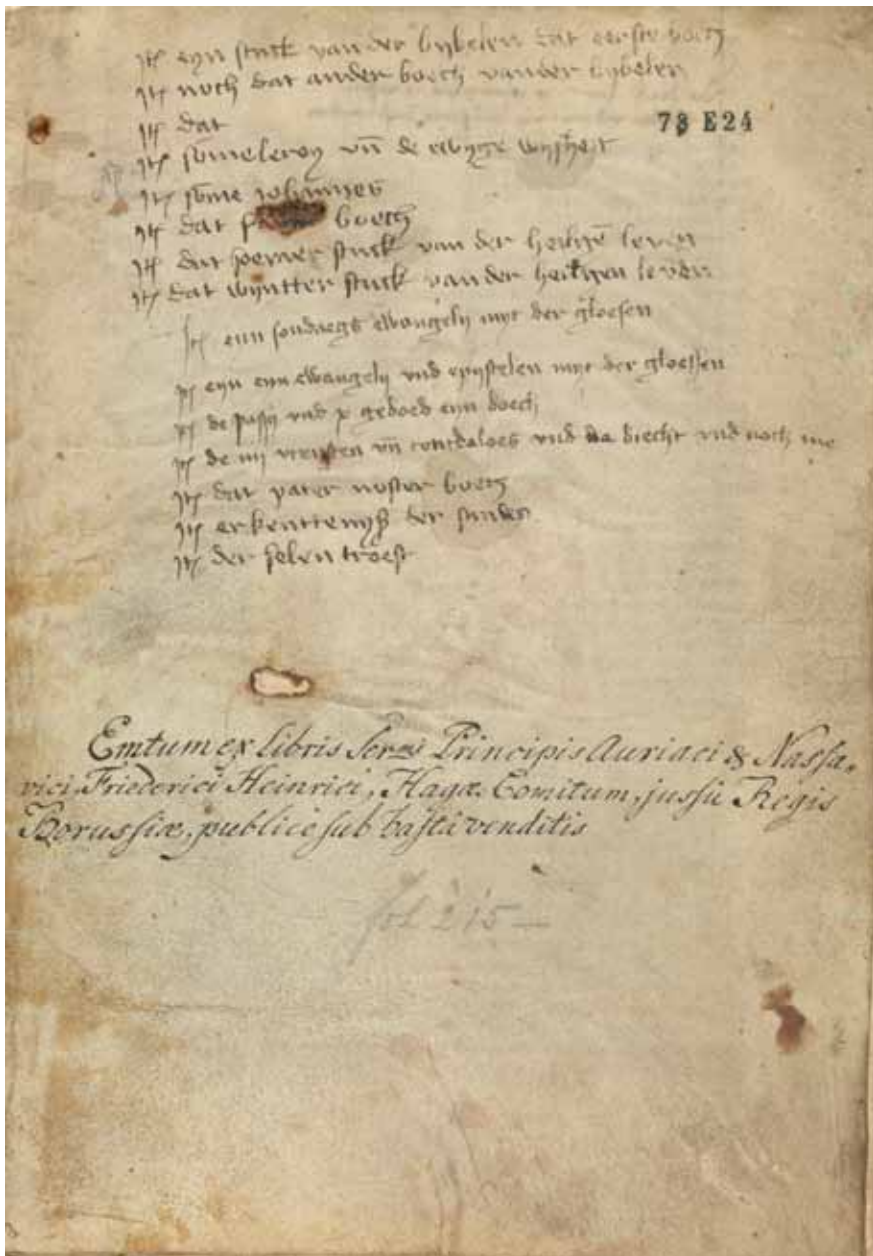 Itē eyn stuck van der bybelen dat eerste boech
Itē noch dat ander boech vander bybelen
Itē dat
73 E24
Itē someleroy vn̄ de ewyge wysheit
Itē sōme iohannes
Itē dat boech
Itē dat somer stuck van der heilgē leven
Itē dat wyntter stuck van der heilgen leven
Itē eyn sondaegs ewangely myt der gloesen
Itē eyn ewangely vnd epystelen myt der gloessen
Itē de passy vnd x geboed eyn boech
Itē de iiij vtersten vn̄ vnd biecht vnd noch me
Itē dat pater noster boech
Itē erkenttenyß der sunden
Itē der selen troest
Emtum ex libris Sermi Principis Auriaci & Nassa-
vici, Friederici Heinrici, Hagæ Comitum, jussu Regis
Borussiæ, publice sub hastâ venditis
fol 215 —